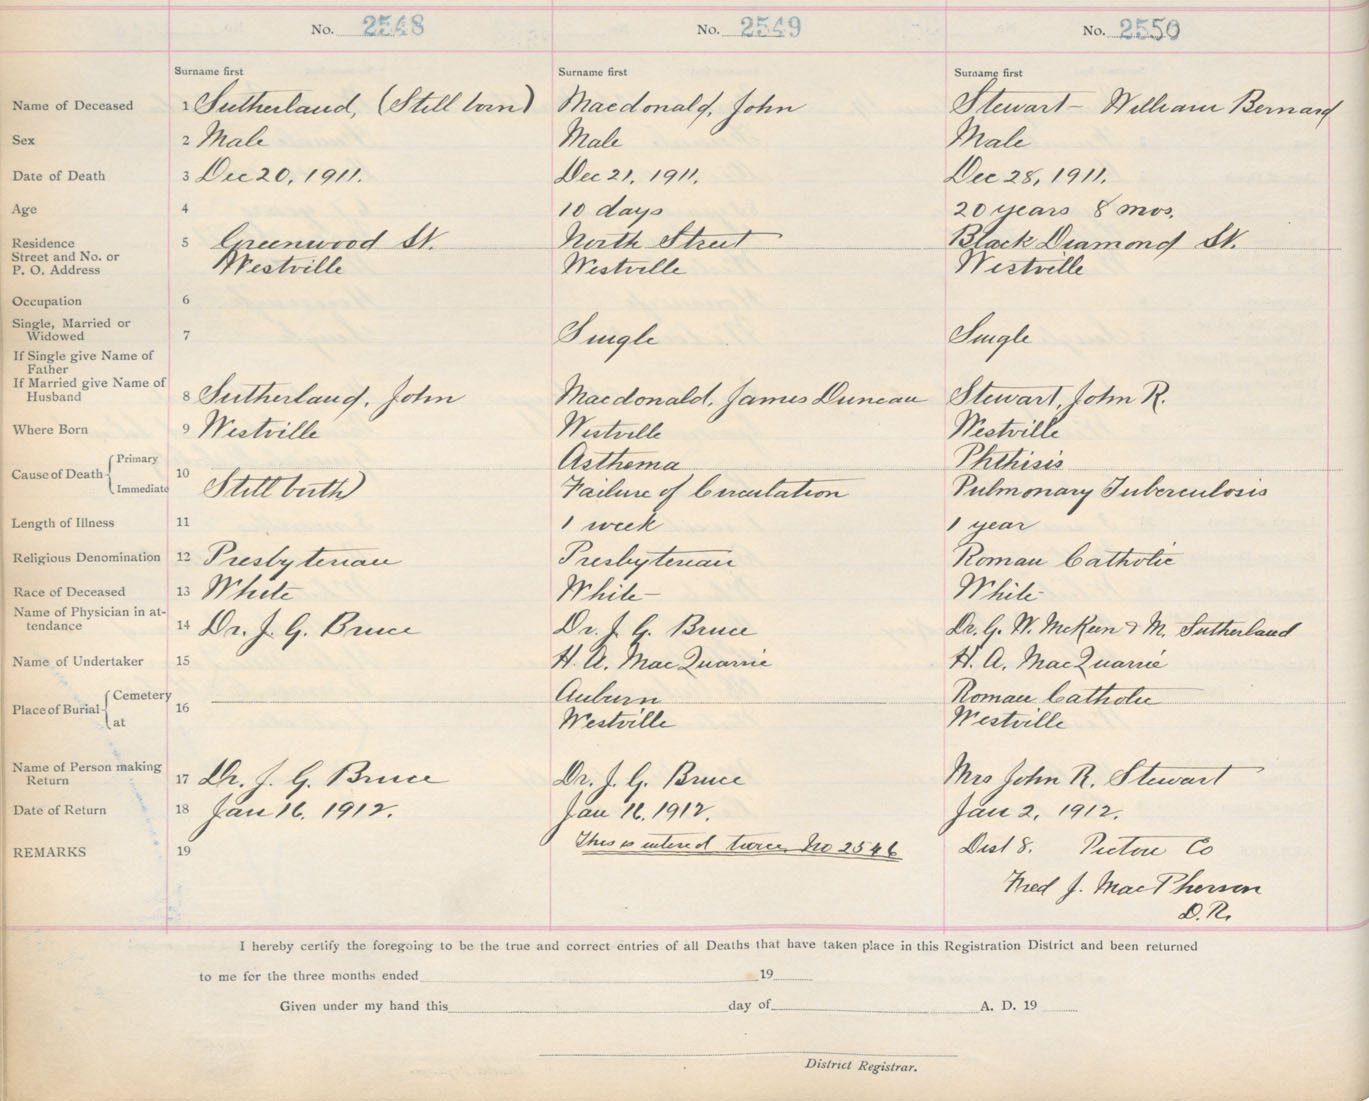 No. 2548 No. 2549 No. 2550
Surname first Surname first Surname first
Name of Deceased 1 Sutherland, (Still born) Macdonald, John Stewart - William Bernard
Sex 2 Male Male Male
Date of Death 3 Dec 20, 1911. Dec 21, 1911. Dec 28, 1911.
Age 4 10 days 20 years 8 mos.
Residence 5 Greenwood St. North Street Black Diamond St.
Street and No. or
P. O. Address Westville Westville Westville
Occupation 6
Single, Married or
Widowed 7 Single Single
If Single give Name of
Father
If Married give Name of
Husband 8 Sutherland, John Macdonald, James Duncan Stewart, John R.
Where Born 9 Westville Westville Westville
Primary Asthema Phthisis
Cause of Death 10
Immediate Still birth) Failure of Circulation Pulmonary Tuberculosis
Length of Illness 11 1 week 1 year
Religious Denomination 12 Presbyterian Presbyterian Roman Catholic
Race of Deceased 13 White White - White -
Name of Physician in at-
tendance 14 Dr. J. G. Bruce Dr. J. G. Bruce Dr. G. W. McKeen & M. Sutherland
Name of Undertaker 15 H. A. MacQuarrie H. A. MacQuarrie
Cemetery Auburn Roman Catholic
Place of Burial 16
at Westville Westville
Name of Person making
Return 17 Dr. J. G. Bruce Dr. J. G. Bruce Mrs John R. Stewart
Date of Return 18 Jan 16. 1912. Jan 16. 1912. Jan 2, 1912.
REMARKS 19 This is entered twice, No 2546 Dist 8. Pictou Co
Fred J. MacPherson
D. R.
I hereby certify the foregoing to be the true and correct entries of all Deaths that have taken place in this Registration District and been returned
to me for the three months ended 19
Given under my hand this day of A. D. 19
District Registrar.